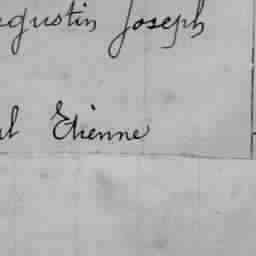 ugustin Joseph
ul Etienne